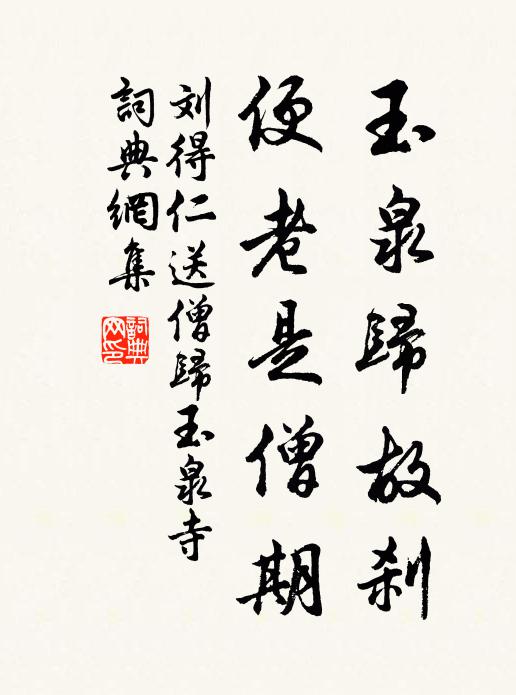 玉泉歸故刹
便老是僧期
刘得仁送僧歸玉泉寺
詞典網集
詞典
网印